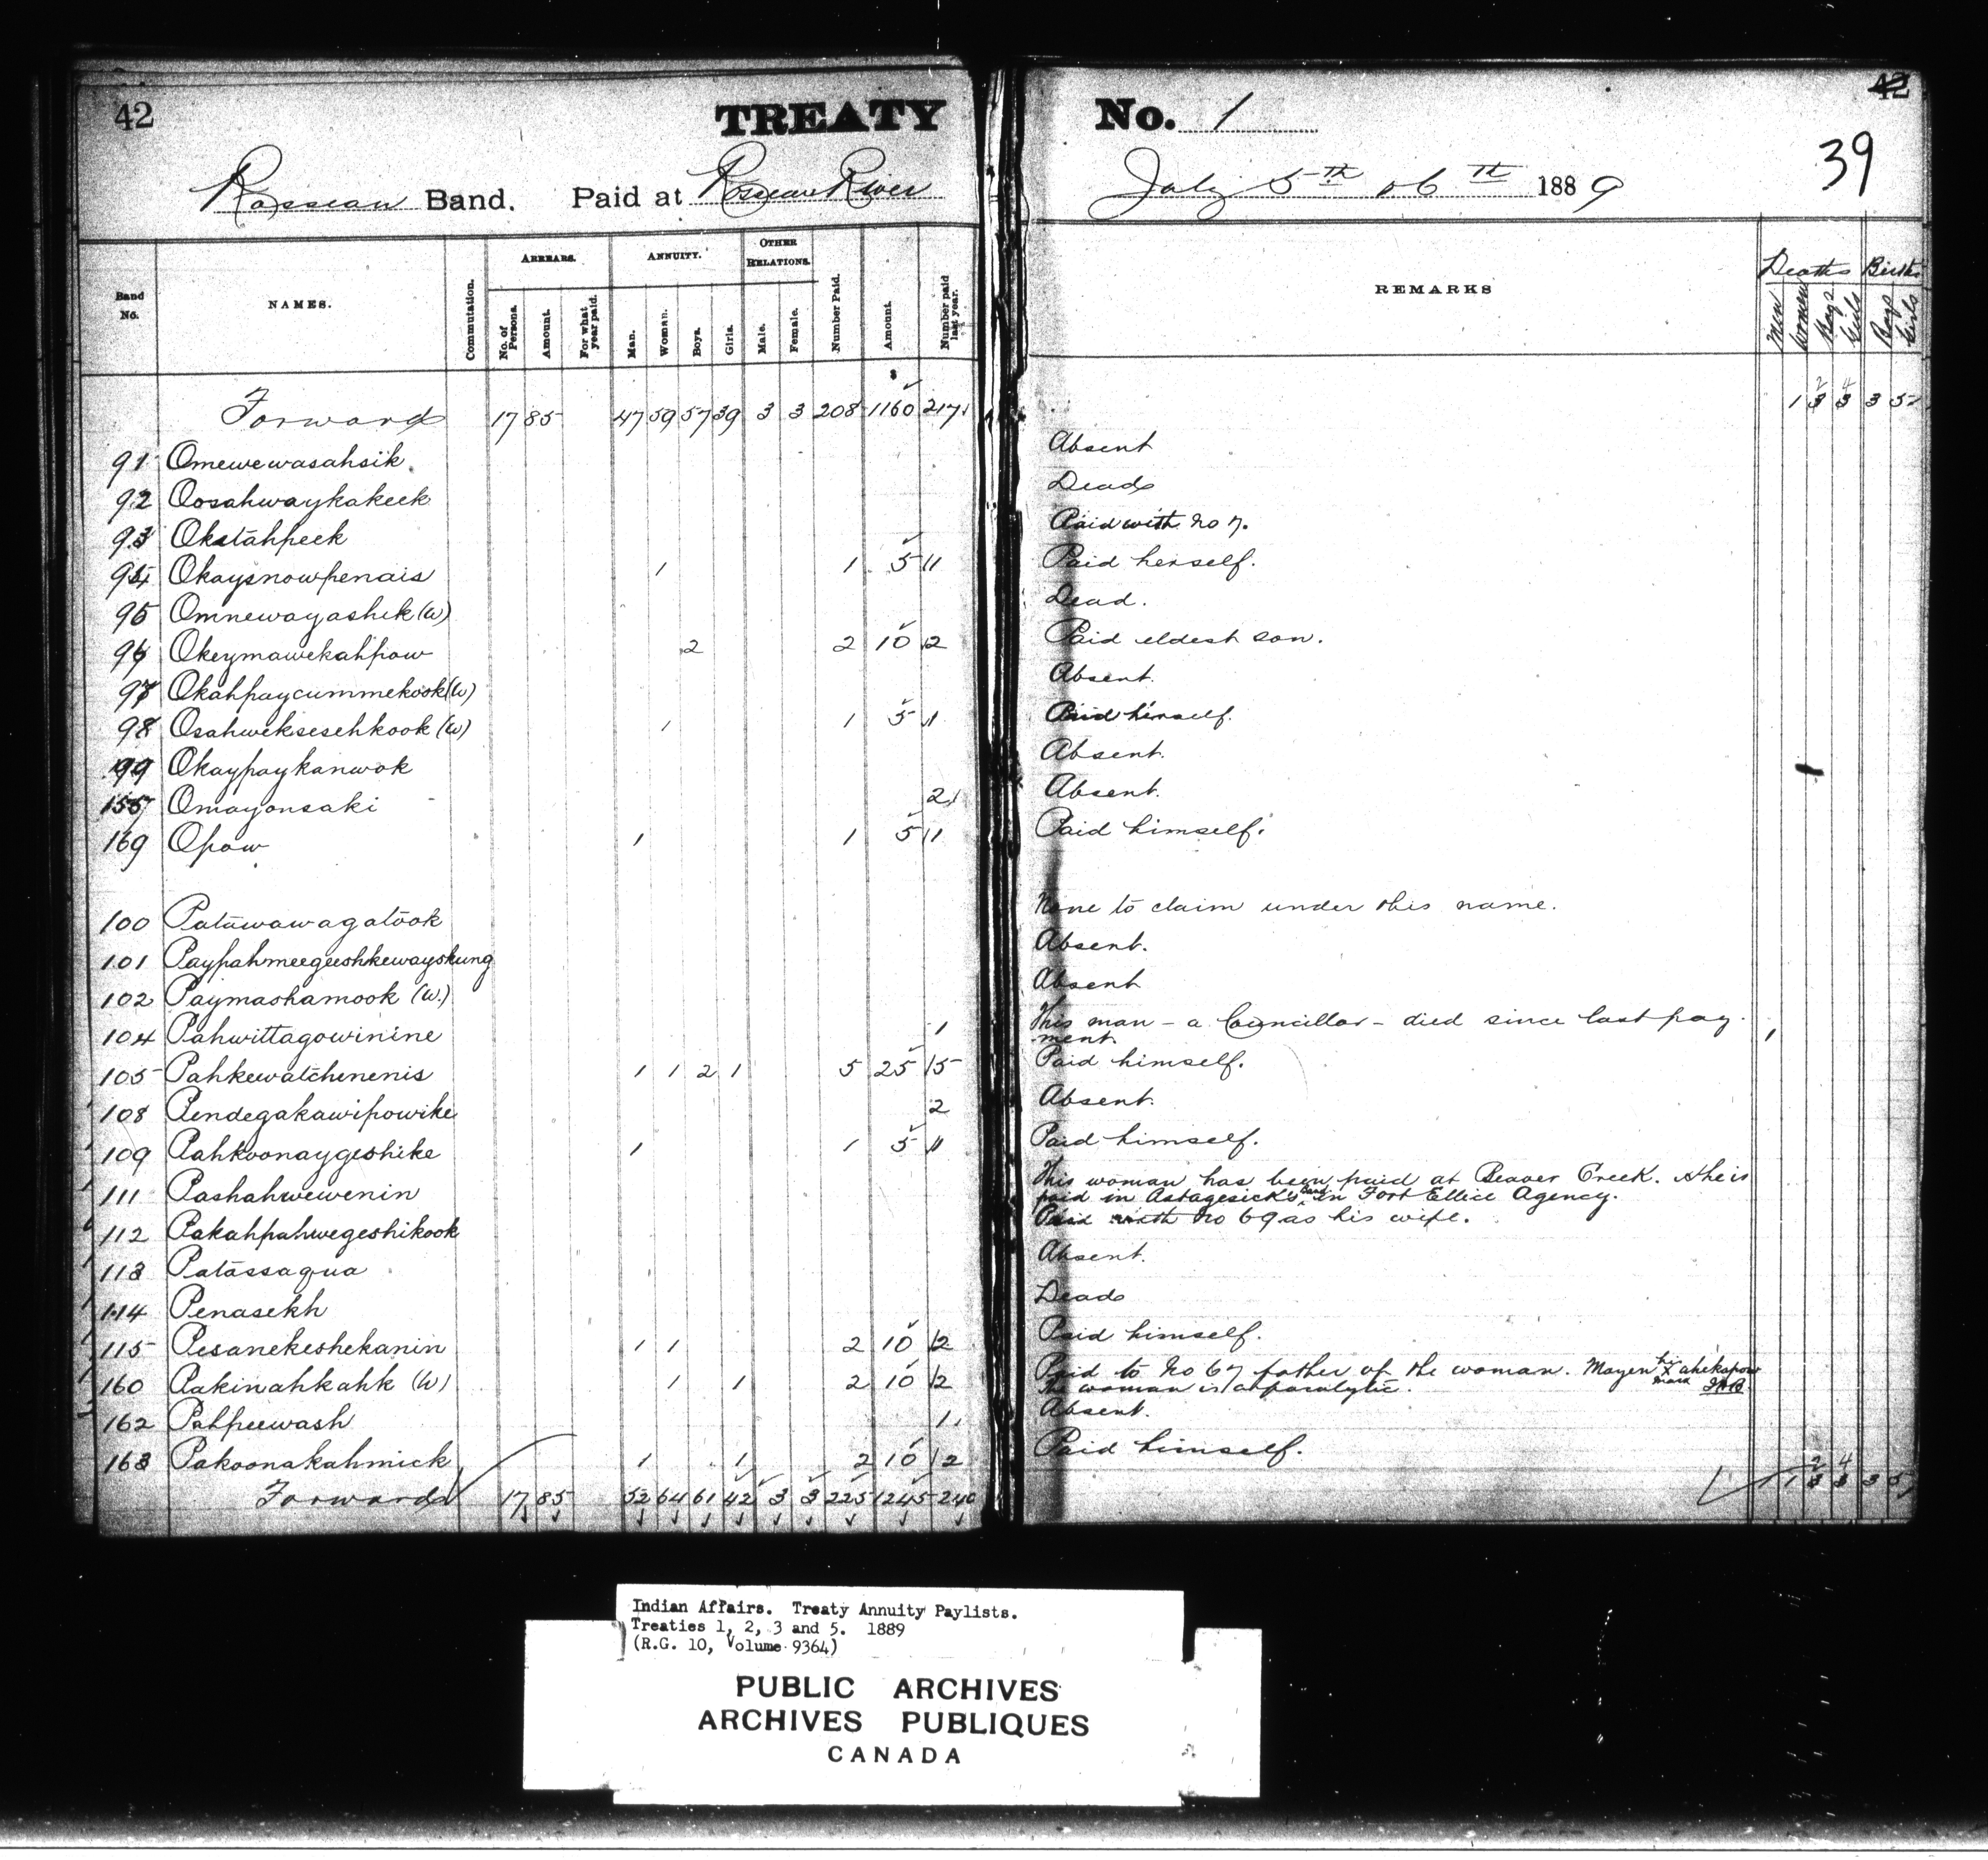 42 TREATY No. 1 42
39
Rosseau Band. Paid at Rosseau River July 5th & 6th 1889
Band No. NAMES. Commutation. ARREARS. No. of Persons. Amount. For what year paid. ANNUITY. Man. Woman. Boys. Girls. OTHER RELATIONS. Male. Female. Number Paid. Amount. Number paid last year. REMARKS Deaths Men Women Boys Girls Births Boys Girls
Forward 17 85 47 59 57 39 3 3 208 1160 217 1 3 2 3 4 3 5
91 Omewewasahsik Absent
92 Oosahwaykakeek Dead
93 Okstahpeek Paid with No 7.
94 Okaysnowpenais 1 1 5 1 Paid herself.
95 Omnewayashek (W) Dead.
96 Okeymawekahpow 2 2 10 2 Paid eldest son.
97 Okahpaycummekook (W) Absent.
98 Osahweksesehkook (W) 1 1 5 1 Paid herself.
99 Okaypaykanwok Absent.
157 Omayonsaki 2 Absent.
169 Opow 1 1 5 1 Paid himself.
100 Patawawagatook None to claim under this name.
101 Paypahmeegeeshkewayskung Absent.
102 Paymashamook (W.) Absent
104 Pahwittagowinine 1 This man - a Councillor - died since last pay- 1
ment.
105 Pahkewatchenenis 1 1 2 1 5 25 5 Paid himself.
108 Pendegakawipowike 2 Absent.
109 Pahkoonaygeshike 1 1 5 1 Paid himself.
111 Pashahwewenin This woman has been paid at Beaver Creek. She is
paid in Astagesick's Band in Fort Ellice Agency.
112 Pakahpahwegeshikook Paid with No 69 as his wife.
113 Patassaqua Absent.
114 Penasekh Dead
115 Pesanekeshekanin 1 1 2 10 2 Paid himself.
160 Pakinahkahk (W) 1 1 2 10 2 Paid to No 67 father of the woman. Mayen his x mark ahekapow
The woman is a paralytic.
162 Pahpeewash 1 Absent.
163 Pakoonakahmick 1 1 2 10 2 Paid himself.
Forward 17 85 52 64 61 42 3 3 225 1245 240 1 1 3 2 3 4 3 5
Indian Affairs. Treaty Annuity Paylists.
Treaties 1, 2, 3 and 5. 1889
(R.G. 10, Volume 9364)
PUBLIC ARCHIVES
ARCHIVES PUBLIQUES
CANADA